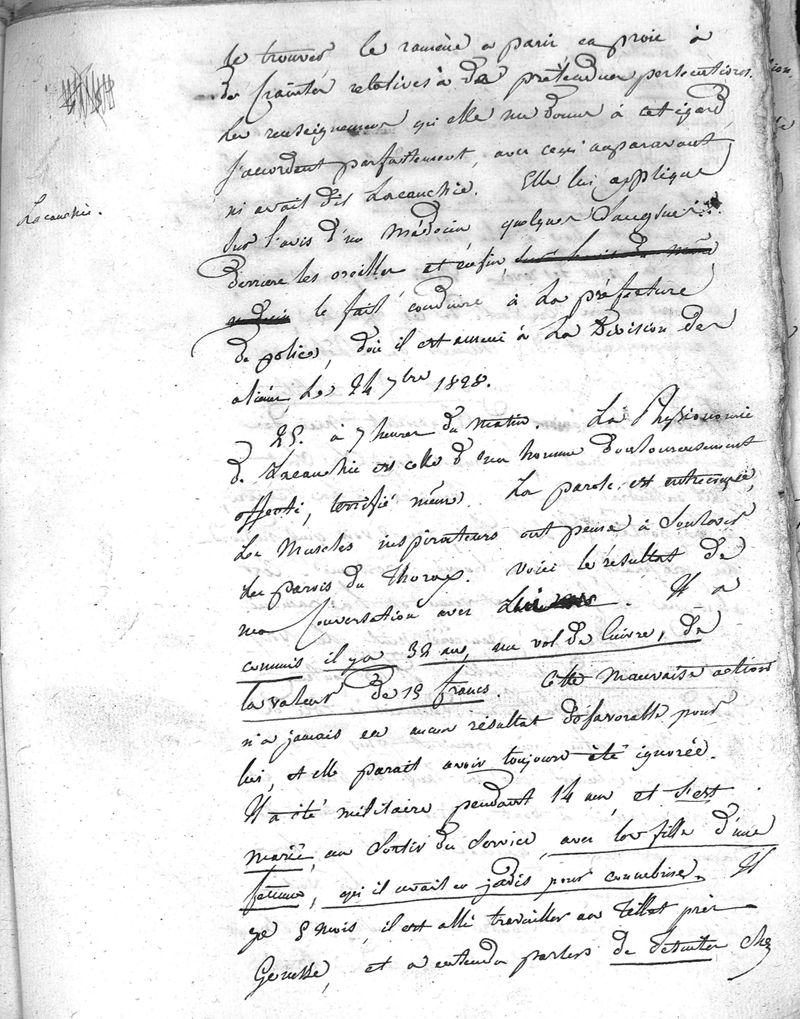 le trouver le ramène a paris en proie à
des craintes relatives à de prétendues persecutions.
Les renseignemens qu'elle me donne à cet égard
s'accordent parfaitement, avec ce qu'auparavant
m'avait dit Lacauchie. Elle lui applique
Lacauchie.
sur l'avis d'un Médecin quelques Sangsues
derriere les oreilles et enfin
le fait conduire à La préfecture
de police, d'où il est amené à La Division des
aliénés, Le 24 7bre 1828.
25. à 7 heures du matin. La Physionomie
de Lacauchie est celle d'un homme douloureusement
affecté, terrifié même. La parole est entrecoupée,
Les Muscles inspirateurs ont peine à Soulever
Les parois du Thorax. Voici le résultat de
ma Conversation avec Lui. Il a
commis il y a 32 ans, un vol de Cuivre, de
la valeur de 18 francs. Cette Mauvaise action
n'a jamais eu aucun résultat défavorable pour
lui, et elle parait avoir toujours été ignorée.
Il a été militaire pendant 14 ans, et s'est
marié, au Sortir du Service, avec la fille d'une
femme, qu'il avait eu jadis pour concubine. Il
ya 5 mois, il est allé travailler au près
et a entendu parler de chez